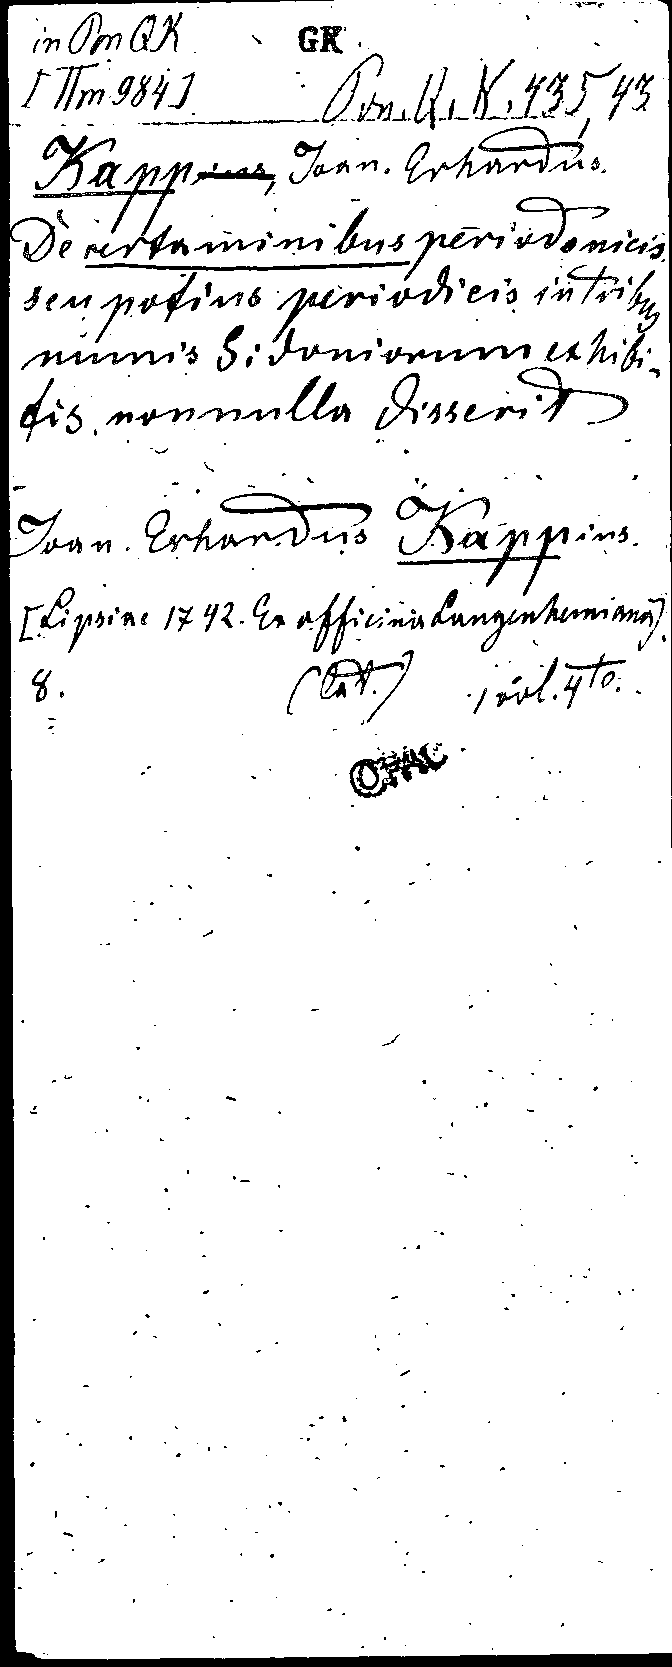 in Pon QK
GK
[IIm 984]
Pon. Q. K. 435, 43
Kappius, Joan. Erhardus.
De certaminibus periodonicis
seu potius periodicis in tribus
numis Sidoniorum exhibi-
tis nonnulla disserit
Joan. Erhardus Kappius.
[Lipsiae 1742. Ex officina Langenhemiana].
8. (Lat.) 1 vol. 4to.
OPAC